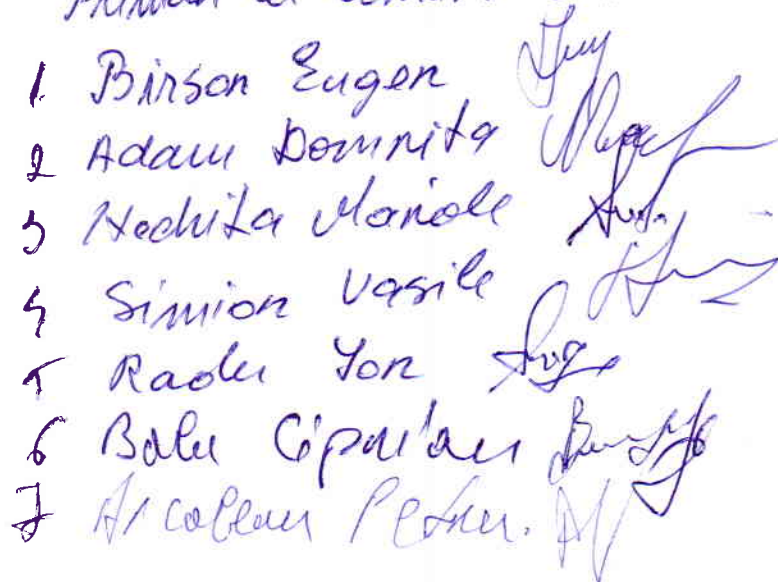 1 Birson Eugen
2 Adam Domnita
3 Nechita Manole
4 Simion Vasile
5 Radu Ion
6 Balu Ciprian
7 Petru.